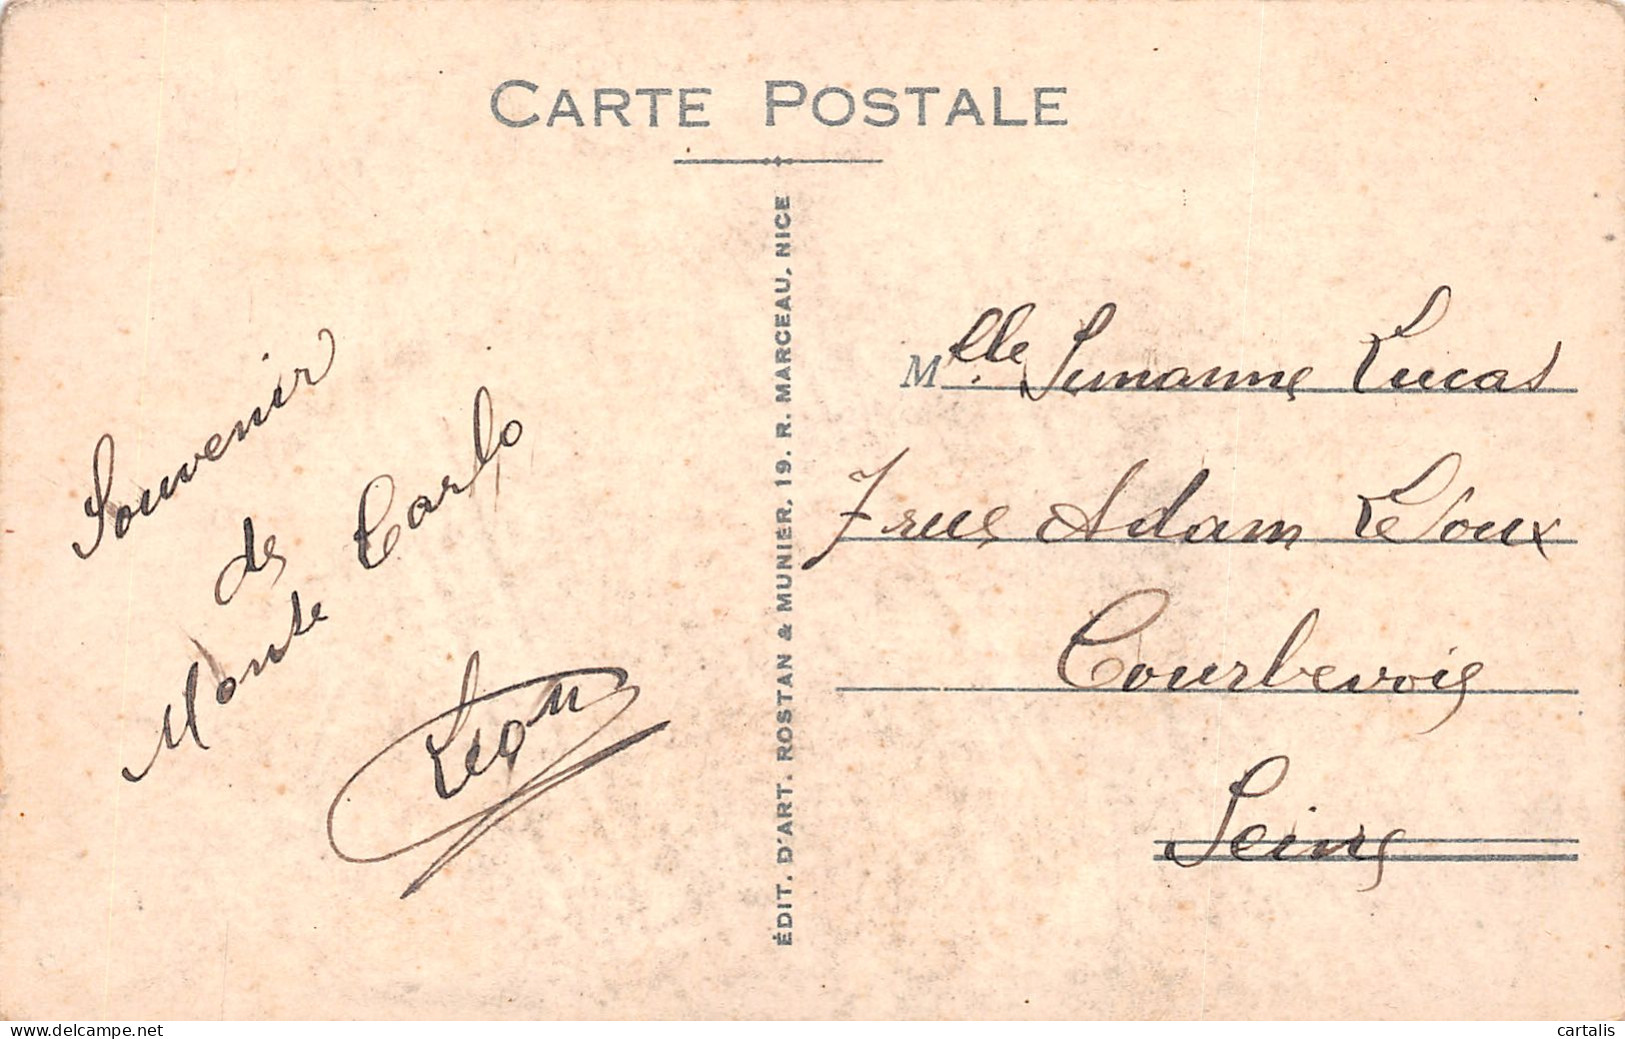 CARTE POSTALE
Souvenir
de
Monte Carlo
Léon
ÉDIT. D'ART. ROSTAN & MUNIER. 19. R. MARCEAU. NICE
Mlle Suzanne Lucas
7 rue Adam Ledoux
Courbevoie
Seine
www.delcampe.net
cartalis